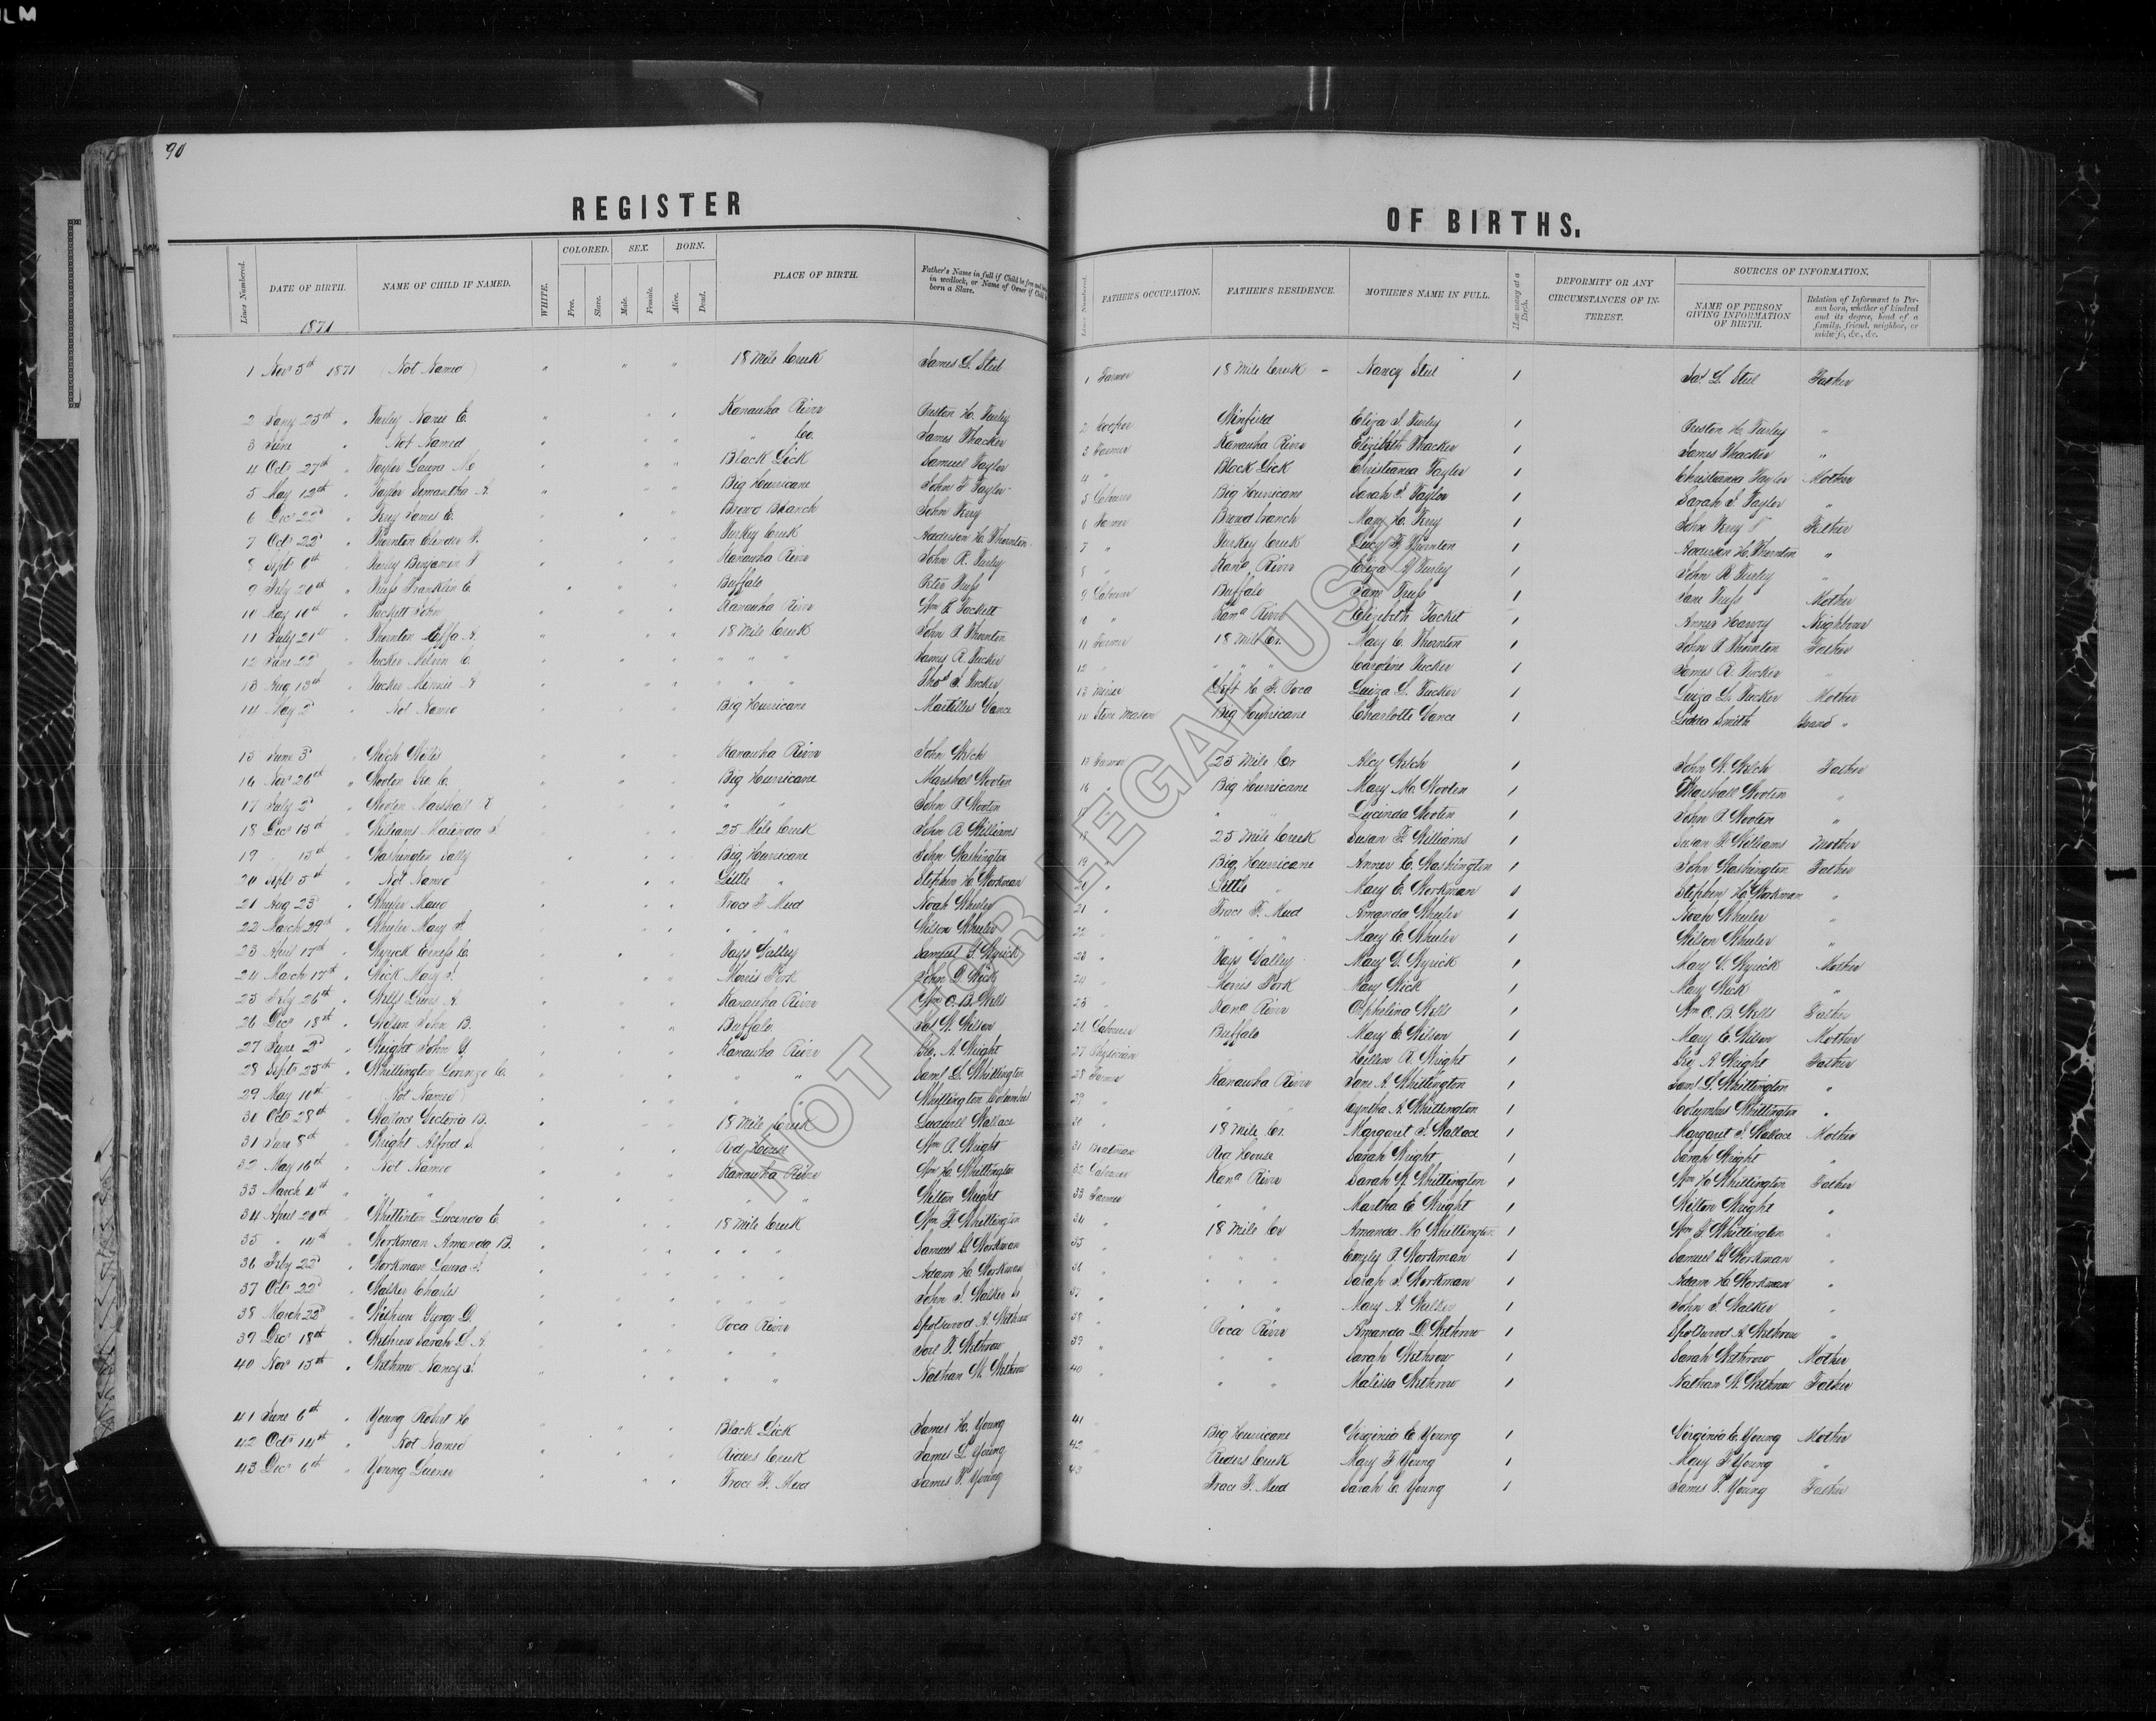 ILM
90
REGISTER
OF BIRTHS.
Lines Numbered.
DATE OF BIRTH.
1871
NAME OF CHILD IF NAMED.
WHITE.
COLORED.
Free.
Slave.
SEX.
Male.
Female.
BORN.
Alive.
Dead.
PLACE OF BIRTH.
Father's Name in full if Child be free and born
in wedlock, or Name of Owner if Child be
born a Slave.
Lines Numbered.
FATHER'S OCCUPATION.
FATHER'S RESIDENCE.
MOTHER'S NAME IN FULL.
How many at a Birth.
DEFORMITY OR ANY
CIRCUMSTANCES OF IN-
TEREST.
SOURCES OF INFORMATION.
NAME OF PERSON
GIVING INFORMATION
OF BIRTH.
Relation of Informant to Per-
son born, whether of kindred
and its degree, head of a
family, friend, neighbor, or
midwife, &c., &c.
1 Nov 5th 1871 (Not Named) " " " 18 Mile Creek James L. Steel 1 Farmer 18 Mile Creek - Nancy Steel 1 Jas L. Steel Father
2 Jany 25th " Turley Nanie E. Kanawha River Preston H. Turley 2 Cooper Winfield Eliza J Turley 1 Preston H. Turley "
3 June " Not Named " Co. James Thacker 3 Farmer Kanawha River Elizibeth Thacker 1 James Thacker "
4 Oct 27th " Taylor Laura M. Black Lick Samuel Taylor 4 " Black Lick Christiana Taylor 1 Christiana Taylor Mother
5 May 12th " Taylor Semantha A. Big Hurricane John F Taylor 5 Labourer Big Hurricane Sarah J. Taylor 1 Sarah J Taylor "
6 Dec 22d " Terry James E. Browd Branch John Terry 6 Farmer Browd branch Mary H. Terry 1 John Terry Father
7 Oct 22d " Thornton Turkey Creek Anderson H. Thornton 7 " Turkey Creek Lucy F. Thornton 1 Anderson H. Thornton "
8 Sept 6th " Turley Benjamin F Kanawha River John R. Turley 8 " Kana River Eliza Turley 1 John R Turley "
9 Feby 20th " Truss Franklin E. Buffalo Peter Truss 9 Labourer Buffalo Jane Truss 1 Jane Truss Mother
10 May 10th " Tackett John Kanawha River Wm Tackett 10 " Kana River Elizibeth Tacket 1 Harvey Neighbour
11 July 21st " Thornton Effa A. 18 Mile Creek John P. Thornton 11 Farmer 18 Mile Cr. Mary C. Thornton 1 John P Thornton Father
12 June 22d " Tucker Melvin C. " " " James A. Tucker 12 " " " " Caroline Tucker 1 James A. Tucker "
13 Aug 13th " Tucker Minnie A " " " Thos J. Tucker 13 Miner Left H. F. Poca Luiza L. Tucker 1 Luiza L. Tucker Mother
14 May 2d " Not Named Big Hurricane Vance 14 Stone Mason Big Hurricane Charlotte Vance 1 Smith Grand "
15 June 3d " Welch Kanawha River John Welch 15 Farmer 25 Mile Cr Alcy Welch 1 John W. Welch Father
16 Nov 26th " Wooten Geo. C. Big Hurricane Marshal Wooten 16 " Big Hurricane Mary M. Wooten 1 Marshall Wooten "
17 July 2d " Wooten Marshall " " John P Wooten 17 " " " Lucinda Wooten 1 John P Wooten "
18 Dec 15th " Williams Malinda J. 25 Mile Creek John A Williams 18 " 25 Mile Creek Susan F. Williams 1 Susan F. Williams Mother
19 " 15th " Washington Sally Big Hurricane John Washington 19 " Big Hurricane E. Washington 1 John Washington Father
20 Sept 5th " Not Named Little " Stephen H. Workman 20 " Little " Mary E. Workman 1 Stephen H. Workman "
21 Aug 23d " Wheeler Maud Trace F. Mud Noah Wheeler 21 " Trace F. Mud Amanda Wheeler 1 Noah Wheeler "
22 March 29th " Wheeler Mary A. " " " Wilson Wheeler 22 " " " " Mary E. Wheeler 1 Wilson Wheeler "
23 April 17th " Wyrick C. Tays Valley Samuel Wyrick 23 " Tays Valley Mary V. Wyrick 1 Mary V. Wyrick Mother
24 March 17th " Wick Mary J. Morris Fork John Wick 24 " Morris Fork Mary Wick 1 Mary Wick "
25 Feby 26th " Wells A. Kanawha River Wm O. B. Wells 25 " Kana River Orphelina Wells 1 Wm O. B. Wells Father
26 Dec 18th " Wilson John B. Buffalo Jas W. Wilson 26 Labourer Buffalo Mary E. Wilson 1 Mary E. Wilson Mother
27 June 2d " Wright John Kanawha River Geo. A. Wright 27 Physician Hellen A. Wright 1 Geo A Wright Father
28 Sept 25th " Whittington Lorenzo C. " " Saml L. Whittington 28 Farmer Kanawha River Jane A. Whittington 1 Saml L. Whittington "
29 May 10th " (Not Named) " " Whittington Columbus 29 " " " Cyntha A. Whittington 1 Columbus Whittington "
30 Oct 28th " Wallace Victoria B. 18 Mile Creek Wallace 30 " 18 Mile Cr. Margaret J. Wallace 1 Margaret J. Wallace Mother
31 June 8th " Wright Alfred S. Red House Wm P. Wright 31 Boatman Red House Sarah Wright 1 Sarah Wright "
32 May 16th " Not Named Kanawha River Wm H. Whittington 32 Labourer Kana River Sarah W. Whittington 1 Wm H Whittington Father
33 March 4th " " " " Wilton Wright 33 Farmer " " Martha E Wright 1 Wilton Wright "
34 April 20th " Whittinton Lucinda E. 18 Mile Creek Wm F. Whittington 34 " 18 Mile Cr Amanda H Whittington 1 Wm F. Whittington "
35 " 14th " Workman Amanda B. " " " Samuel G Workman 35 " " " " Emily P. Workman 1 Samuel G Workman "
36 Feby 22d " Workman Laura J. " " " Adam H. Workman 36 " " " " Sarah J Workman 1 Adam H. Workman "
37 Oct 22d " Walker Charles " " " John J. Walker 37 " " " " Mary A. Walker 1 John J. Walker "
38 March 22d " Withrow George D. Poca River Spotswood A. Withrow 38 " Poca River Amanda D. Withrow 1 Spotswood A. Withrow "
39 Dec 18th " Withrow Sarah L. A. " " Joel F. Withrow 39 " " " Sarah Withrow 1 Sarah Withrow Mother
40 Nov 15th " Withrow Nancy J. " " Nathan W. Withrow 40 " " " Malissa Withrow 1 Nathan W. Withrow Father
41 June 6th " Young Robert H. Black Lick James H. Young 41 " Big Hurricane Virginia C. Young 1 Virginia C. Young Mother
42 Oct 14th " Not Named Riders Creek James L. Young 42 " Riders Creek Mary F Young 1 Mary F Young "
43 Dec 6th " Young Trace F. Mud James F. Young 43 " Trace F. Mud Sarah C. Young 1 James F. Young Father
NOT FOR LEGAL USE